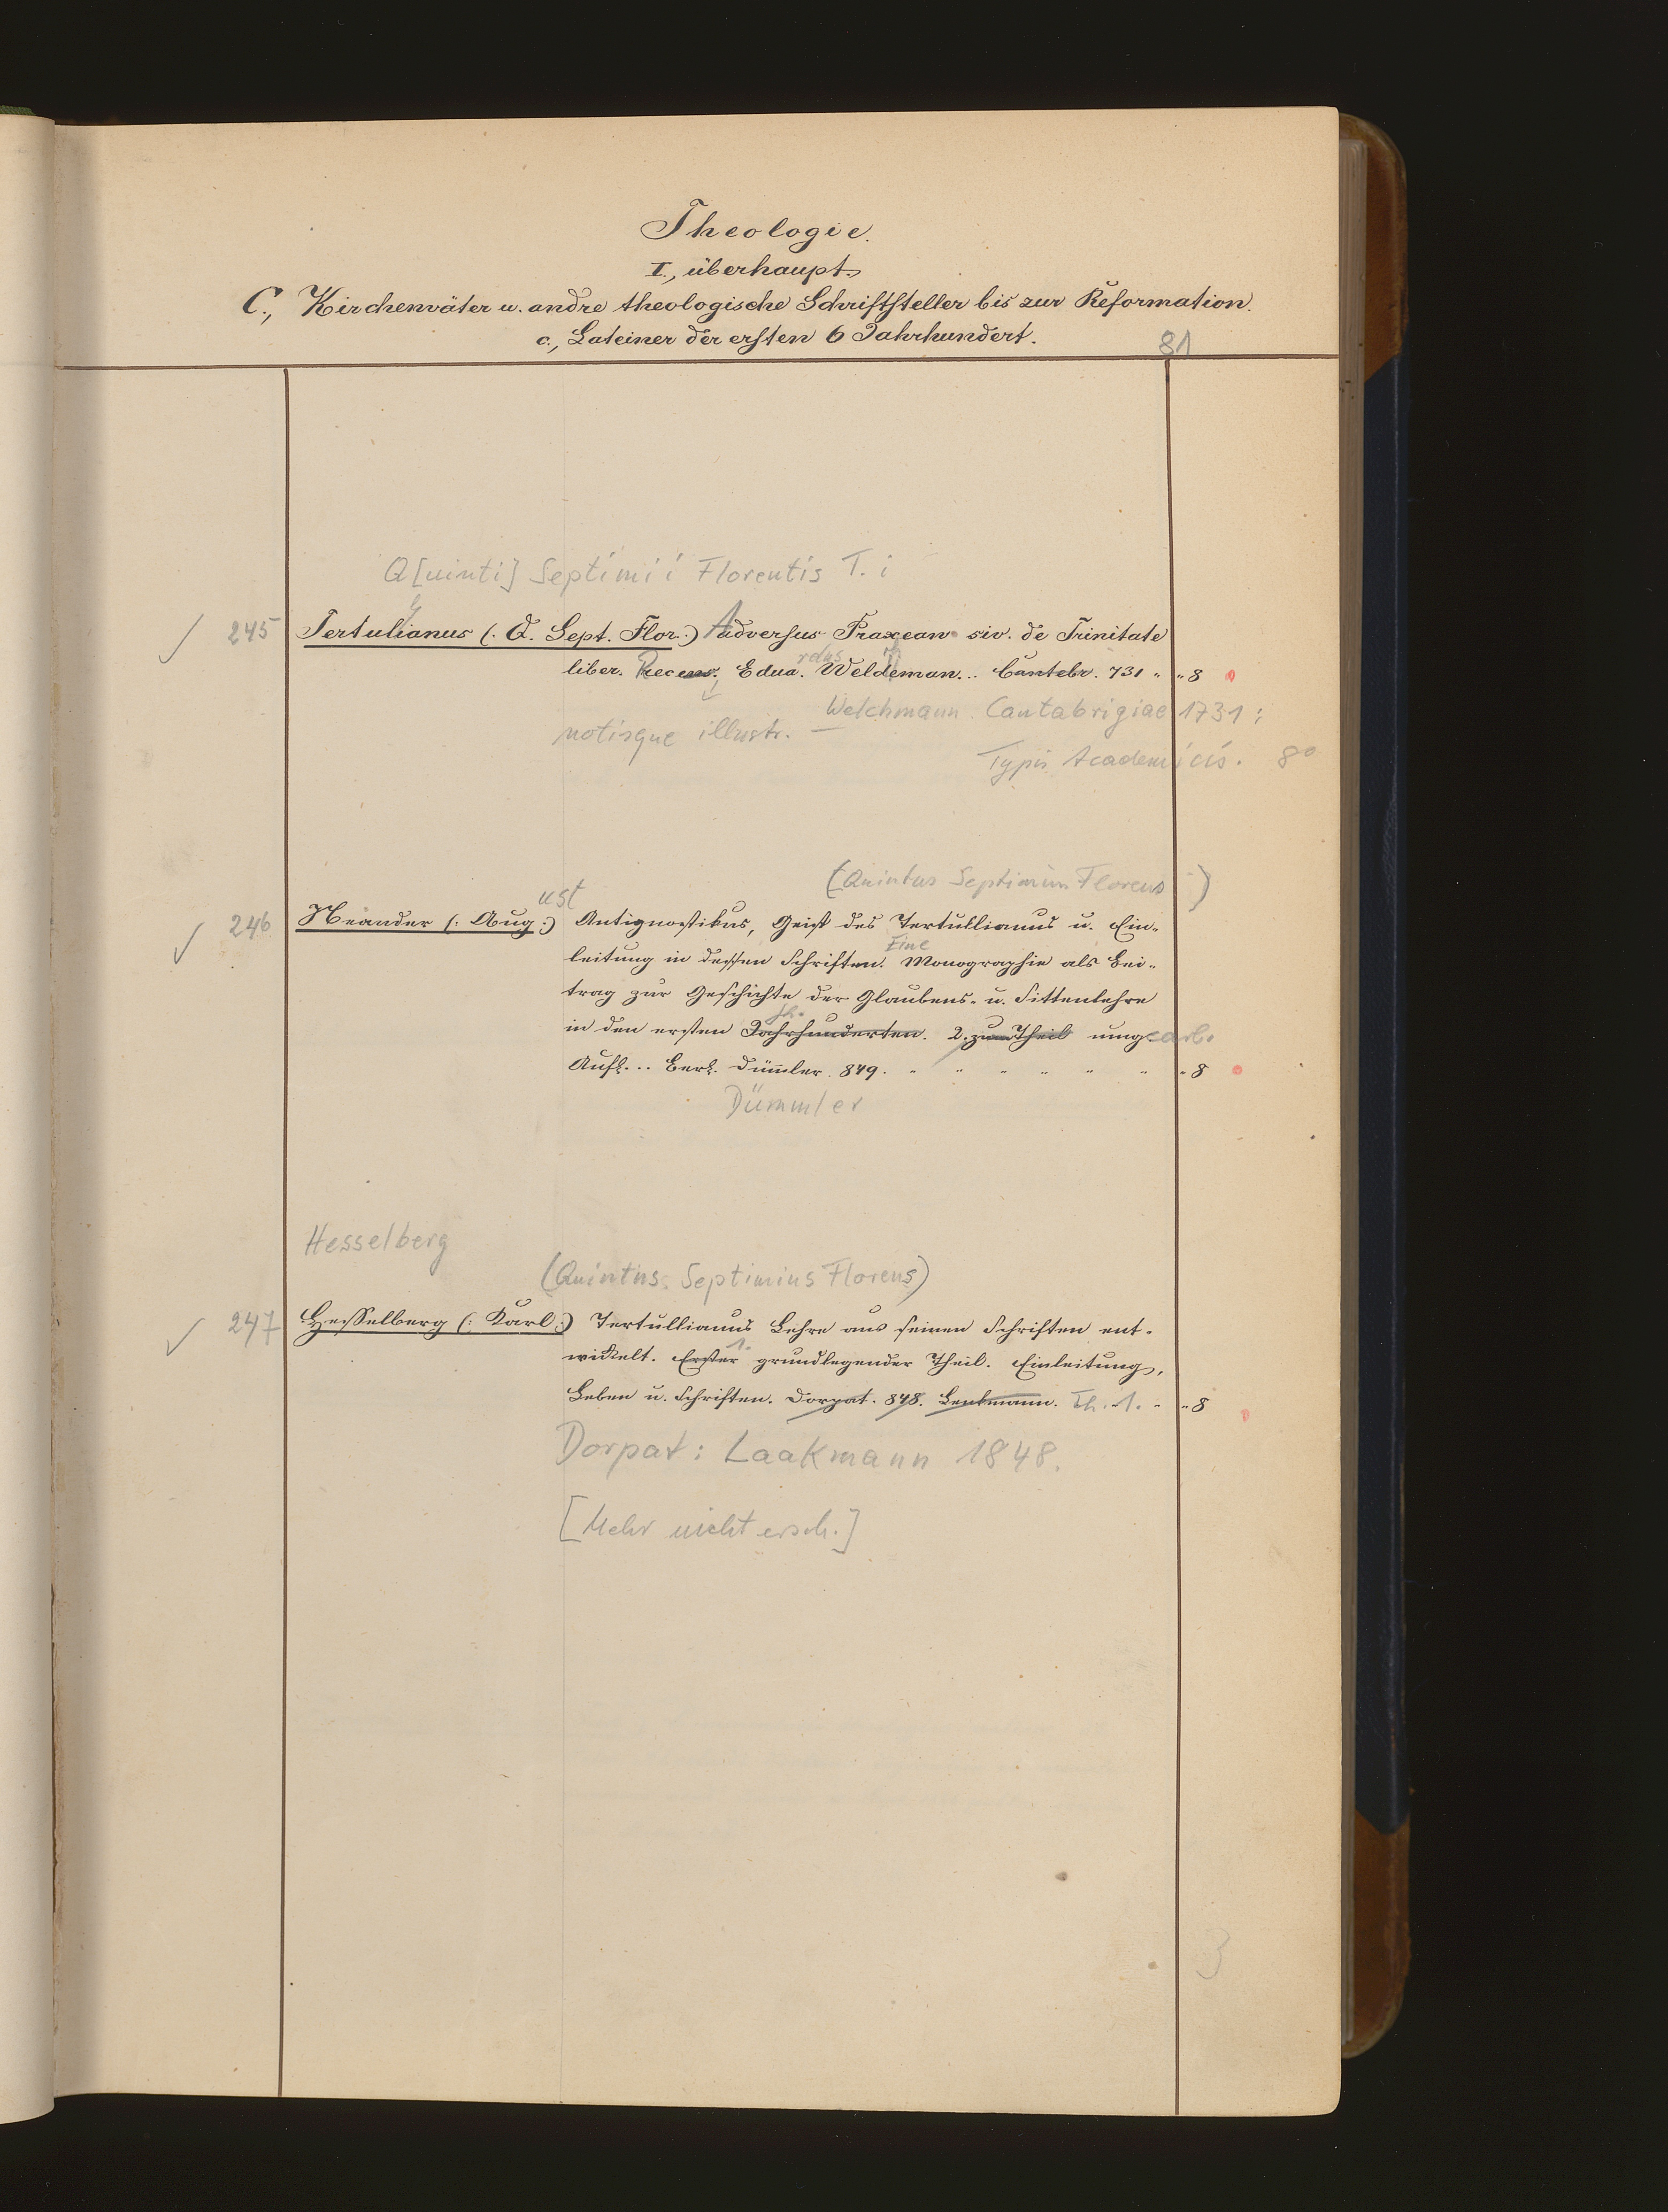 Theologie.
I., überhaupt.
C., Kirchenväter u. andre theologische Schriftsteller bis zur Reformation.
c., Lateiner der ersten 6 Jahrhundert.
81
Q[uinti] Septimii Florentis T. i
l
245 Tertulianus (: Q. Sept. Flor:) Adversus Praxean siv. de Trinitate
rdus ch
liber. Recens. Edua. Weldeman... Cantebr. 731 " " 8
Welchmann. Cantabrigiae 1731:
notisque illustr.
Typis Academicis. 8°
(Quintus Septimius Florens)
ust
246 Neander (: Aug:) Antignostikus, Geist des Tertullianus u. Ein-
Eine
leitung in dessen Schriften. Monographie als Bei-
trag zur Geschichte der Glaubens- u. Sittenlehre
Jh.
in den ersten Jahrhunderten. 2. zum Theil umgearb.
Aufl... Berl. Dümler. 849. " " " " " " " 8
Dümmler
Hesselberg
(Quintus Septimius Florens)
247 Hesselberg (: Karl:) Tertullianus Lehre aus seinen Schriften ent-
1.
wickelt. Erster grundlegender Theil. Einleitung,
Leben u. Schriften. Dorpat. 848. Th. 1. " " 8
Dorpat: Laakmann 1848.
[Mehr nicht ersch.]
3